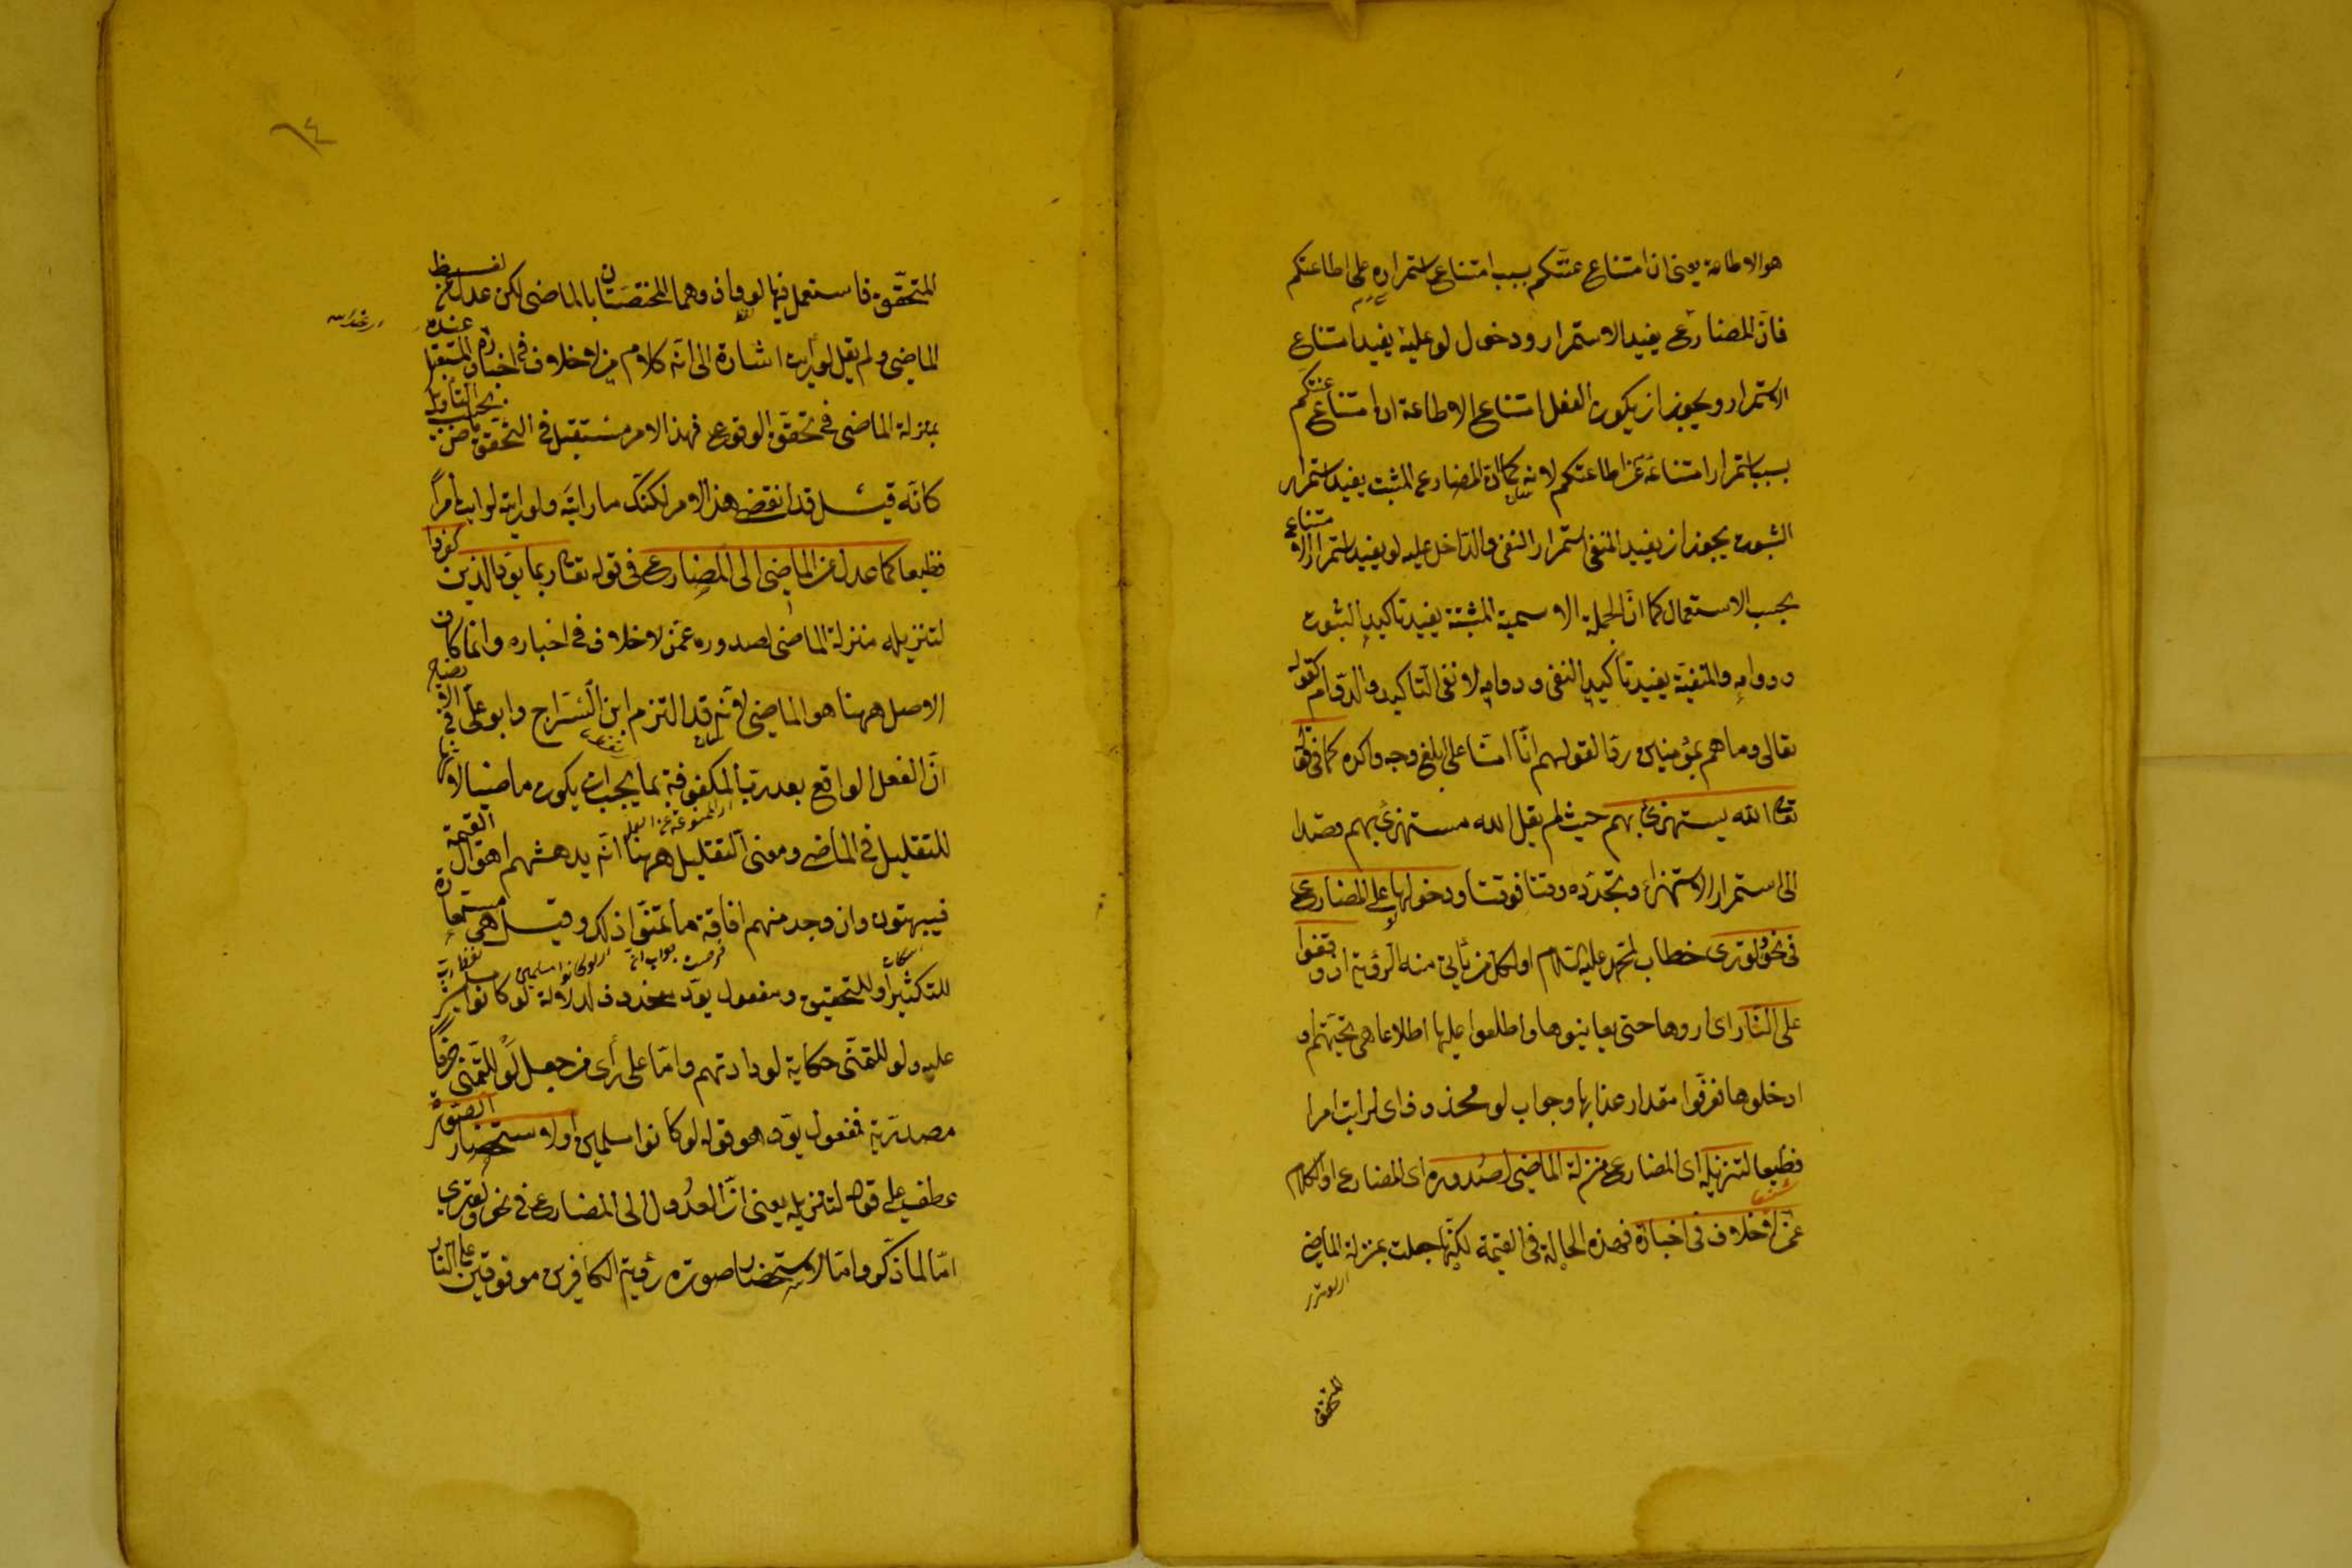 هو الاطاعة يعنى ان امتناع عنتكم بسبب امتناع استمراره على اطاعتكم
فان المضارع يفيد الاستمرار ودخول لو عليه يفيد امتناع
الاستمرار ويجوز ان يكون الفعل امتناع الاطاعة اى امتناع عنتكم
بسبب استمرار امتناعه عن اطاعتكم لانه كما ان المضارع المثبت يفيد استمرار
الثبوت يجوز ان يفيد المنفى استمرار النفى والداخل عليه لو يفيد استمرار الامتناع
بحسب الاستعمال كما ان الجملة الاسمية المثبتة يفيد تاكيد الثبوت
ودوامه والمنفية يفيد تأكيد النفى ودوامه لا نفى التاكيد والدوام كقوله
تعالى وما هم بمؤمنين ردا لقولهم انا امنا على ابلغ وجه واكده كما فى قوله
تعالى الله يستهزئ بهم حيث لم يقل الله مستهزئ بهم قصدا
الى استمرار الاستهزاء وتجدده وقتا فوقتا ودخولها على المضارع
فى نحو ولو ترى خطاب لمحمد عليه السلام او لكل من يأتى منه الرؤية اذ وقفوا
على النار اى اروها حتى يعاينوها واطلعوا عليها اطلاعا هى تحتهم او
ادخلوها فعرفوا مقدار عذابها وجواب لو محذوف اى لرايت امرا
فظيعا لتنزيله اى المضارع منزلة الماضى لصدوره اى المضارع او الكلام
عمن لا خلاف فى اخباره فهذه الحالة فى القيمة لكنها جعلت بمنزلة الماضى
المتحقق
المتحقق فاستعمل فيها لو واذ وهما المختصتان بالماضى لكن عدل عن لفظ
الماضى ولم يقل لو رايت اشارة الى انه كلام من لا خلاف فى اخباره والمستقبل عنده
بمنزلة الماضى فى تحقق الوقوع فهذا الامر مستقبل فى التحقق ماض بحسب التأويل
كانه قيل قد انقضى هذا الامر لكنك ما رايته ولو رايته لرايت امرا
فظيعا كما عدل عن الماضى الى المضارع فى قوله تعالى ربما يود الذين كفروا
لتنزيله منزلة الماضى لصدوره عمن لا خلاف فى اخباره وانما كان
الاصل ههنا هو الماضى لانه قد التزم ابن السراج وابو على فى الايضاح
ان الفعل الواقع بعد رب المكفوفة بما يجب ان يكون ماضيا لانها
للتقليل فى الماضى ومعنى التقليل ههنا انه يدهشهم اهوال القيمة
فيبهتون وان وجد منهم افاقة ما تمنوا ذلك وقيل هى مستعارة
للتكثير او للتحقيق ومفعول يود محذوف لدلالة لو كانوا مسلمين
عليه ولو للتمنى حكاية لودادتهم واما على رأى من جعل لو للتمنى حرفا
مصدرية فمفعول يود هو قوله لو كانوا مسلمين او لاستحضار الصورة
عطف على قوله لتنزيله يعنى ان العدول الى المضارع فى نحو ولو ترى
اما لما ذكر واما لاستحضار صورة رؤية الكافرين موقوفين على النار